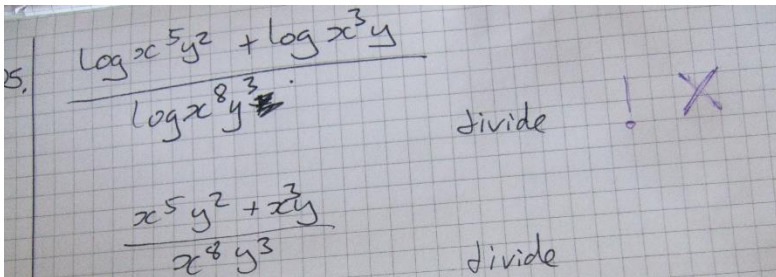 25. log x⁵y² + log x³y
log x⁸y³ divide ! X
x⁵y² + x³y
x⁸y³ divide